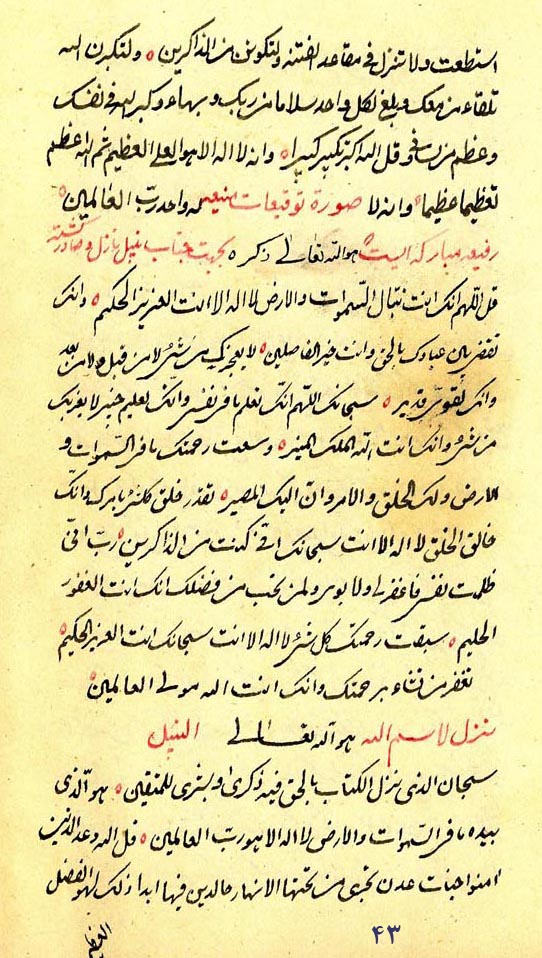 استطعت ولا تنزل فی مقاعد الفتنه ولتکونن من الذاکرین ه ولتکبرن الله
تلقاء من معک وبلغ لکل واحد سلاما من ربک وبهاء وکبر الله فی نفسک
وعظم من وقل الله اکبر تکبیر کبیرا ه وانه لا اله الا هو العلی العظیم ثم الله اعظم
تعظیما عظیما ه وانه لا صورة توقیعات منیعه واحد رب العالمین ه
رفیعه مبارکه الیست هو الله تعالی ذکره ه بجهت جناب نبیل نازل وصادر گشته
قل اللهم انک انت السموات والارض لا اله الا انت العزیز الحکیم ه وانک
تقضی بین عبادک بالحق وانت خیر الفاصلین ه لا یعجزک من شیء لا من قبل ولا من بعد
وانک لقوی قدیر ه سبحانک اللهم انک تعلم ما فی نفسی وانک لعلیم خبیر لا یعزبک
من شیء وانک انت الله الملک المنیر ه وسعت رحمتک ما فی السموات و
الارض ولک الخلق والامر وان الیک المصیر ه تقدر خلق کلشیء بامرک وانک
خالق الخلق لا اله الا انت سبحانک انی کنت من الذاکرین ه رب انی
ظلمت نفسی فاغفر لی ولابوی ولمن یحب من فضلک انک انت الغفور
الحلیم ه سبقت رحمتک کل شیء لا اله الا انت سبحانک انت العزیز الحکیم ه
تغفر من تشاء برحمتک وانک انت الله مولی العالمین ه
نزل لاسم الله هو الله تعالی النبیل
سبحان الذی نزل الکتاب بالحق فیه ذکری وبشری للمتقین ه هو الذی
بیده ما فی السموات والارض لا اله الا هو رب العالمین ه قل الله وعد الذین
امنوا جنات عدن تجری من تحتها الانهار خالدین فیها ابدا ذلک لهو الفضل
العظیم
۴۳